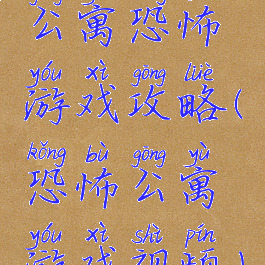 公寓恐怖
yóu xì gōng lüè
游戏攻略(
kǒng bù gōng yù
恐怖公寓
yóu xì shì pín
游戏视频)